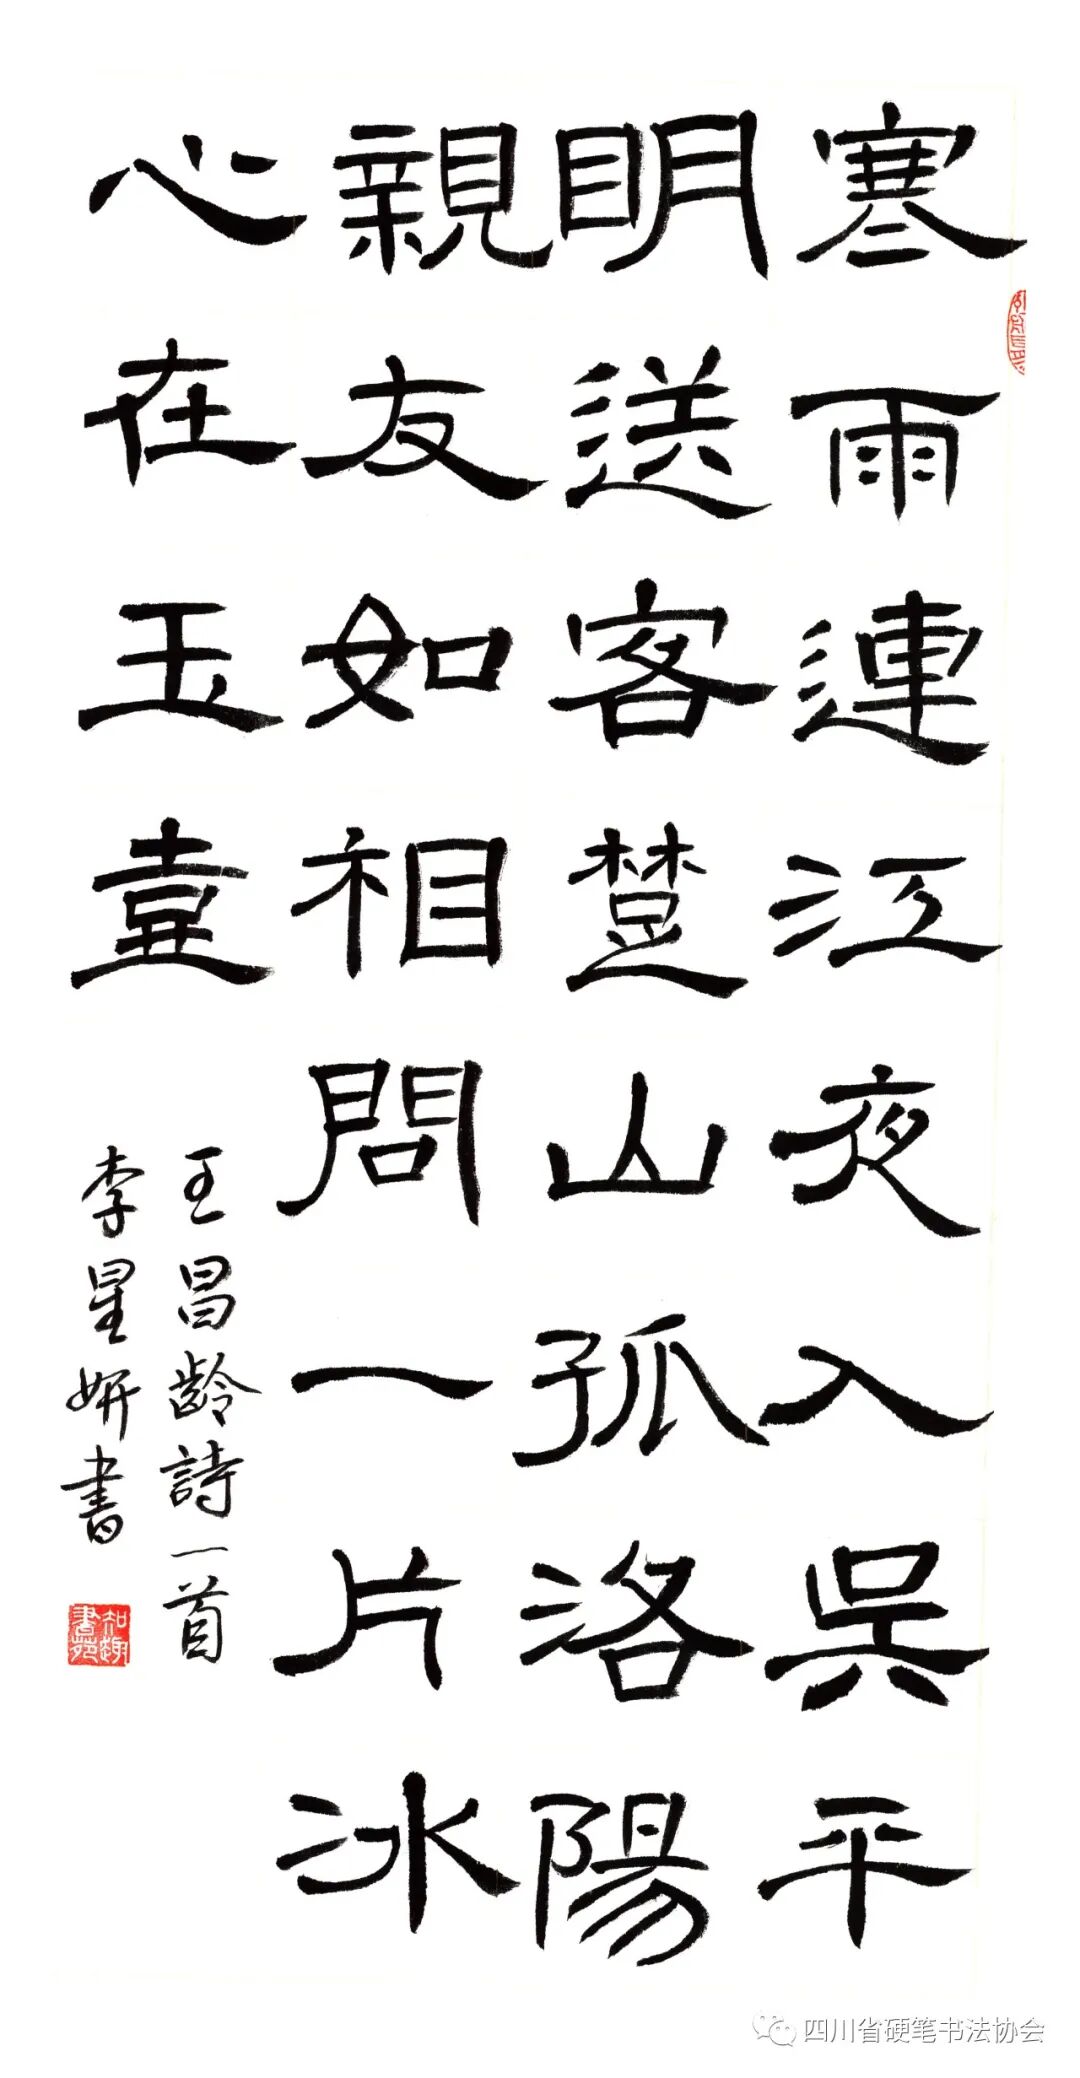 寒雨連江夜入吳平
明送客楚山孤洛陽
親友如相問一片冰
心在玉壺
王昌齡詩一首
李星妍書
知趣書苑
四川省硬笔书法协会